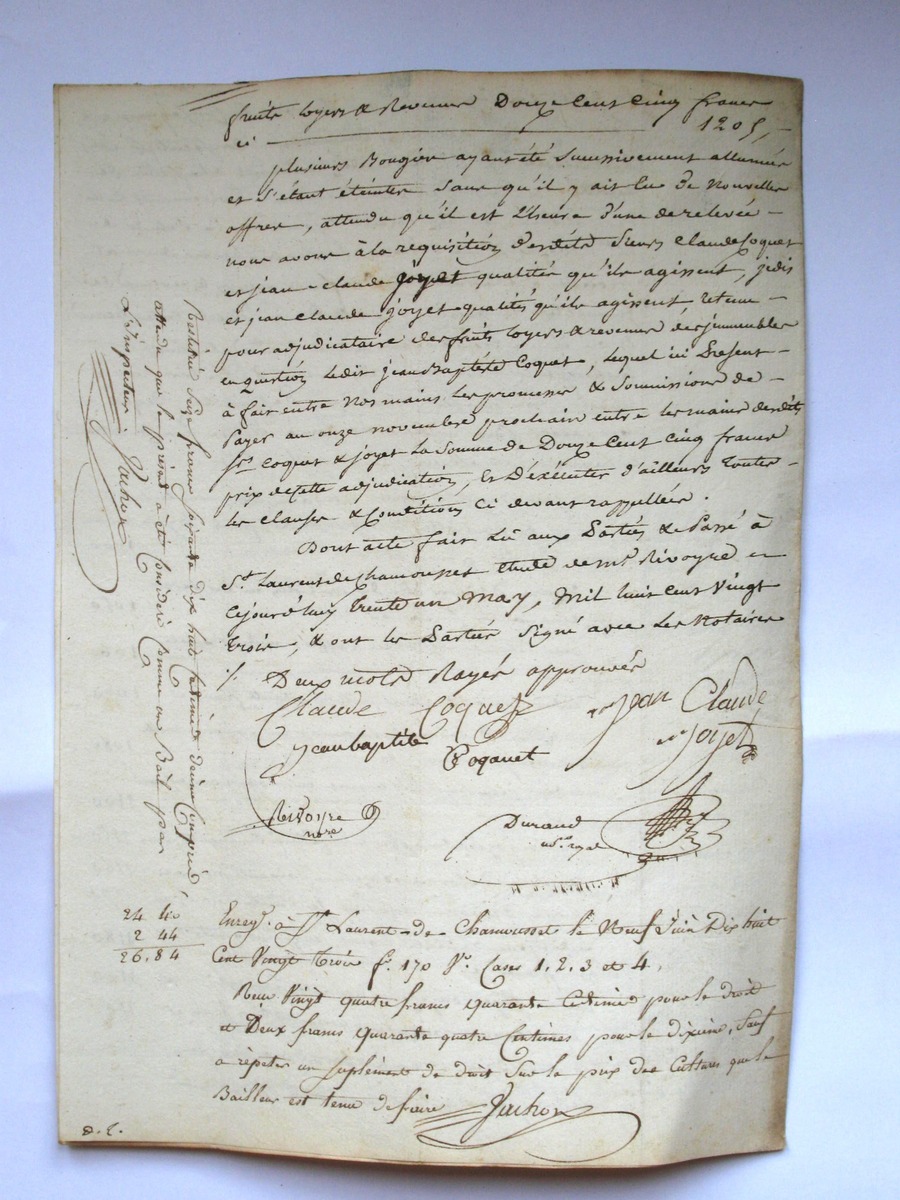 fruits loyers & Revenus Douze Cent Cinq francs
ci 1205,
plusieurs Bougies ayant été Successivement allumées
et S'étant éteintes Sans qu'il y ait Eu De Nouvelles
offres, attendu qu'il est L'heure d'une de relevée
nous avons à la requisition desdits Sieurs Claude Coquet
et jean-claude joyet qualités qu'ils agissent, jedis
et jean Claude joyet qualités qu'ils agissent, retenu
pour adjudicataire des fruits loyers & revenus des immeubles
en question Ledit jean Baptiste Coquet, lequel ici Présent
à fait entre Nos mains les promesses & Soumissions de
Payer au onze novembre prochain entre les mains desdits
Srs Coquet & joyet La Somme de Douze Cent Cinq francs
prix de cette adjudication, Et D'exécuter d'ailleurs toutes
les clauses & Conditions Ci devant rappellées.
Dont acte fait Lu aux Parties & Passé à
St Laurent de Chamousset étude de Me Rivoyre
Cejourd'huy trente un May, Mil huit cent Vingt
trois, & ont les Parties Signé avec Les Notaires
./. Deux mots Rayés approuvés
Claude Coquet
Jean Claude
Joyet
jean baptiste Coquet
Rivoyre
nore
Durand
nre royal
24 40
2 44
26.84
Enregé à St Laurent-de-Chamousset le Neuf Juin Dix huit
Cent Vingt trois fo. 170 Vo. Cases 1, 2, 3 et 4,
Reçu Vingt quatre francs quarante Centimes pour le droit
et Deux francs quarante quatre Centimes pour le dixième, Sauf
a répéter un suplément de droit Sur le prix des Cultures que le
Bailleur est tenu de faire Jachon
Restitué Seize francs soixante dix huit Centimes dixième Compris,
attendu que le présent à été Considéré Comme un Bail par
L'Inspecteur Jachon